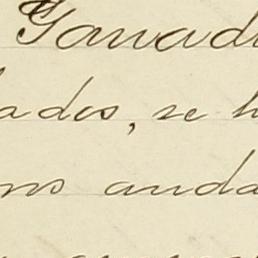 Ganad
ados, se h
ns anda